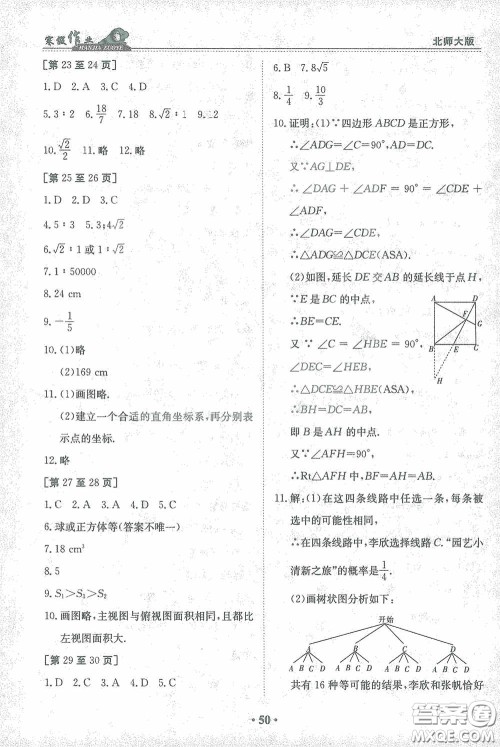 寒假作业
HANJIA ZUOYE
北师大版
[第 23 至 24 页]
1.D 2.A 3.C 4.D
5.3∶2 6.18/7 7.18 8.√2∶1 9.12
10.√2/2 11.略 12.略
[第 25 至 26 页]
1.D 2.C 3.C
4.5∶3 5.3∶4√2
6.√2∶1或1∶√2
7.1∶50000
8.24 cm
9.-1/5
10.(1)略
(2)169 cm
11.(1)画图略.
(2)建立一个合适的直角坐标系,再分别表
示点的坐标.
12.略
[第 27 至 28 页]
1.C 2.A 3.A 4.D 5.C
6.球或正方体等(答案不唯一)
7.18 cm³
8.5
9.S₁>S₃>S₂
10.画图略,主视图与俯视图面积相同,且都比
左视图面积大.
[第 29 至 30 页]
1.D 2.C 3.A 4.D 5.A
6.B 7.8√5
8.1/4 9.10/3
10.证明:(1)∵四边形 ABCD 是正方形,
∴∠ADG=∠C=90°,AD=DC.
又∵AG⊥DE,
∴∠DAG+∠ADF=90°=∠CDE+
∠ADF,
∴∠DAG=∠CDE,
∴△ADG≌△DCE(ASA).
(2)如图,延长 DE 交 AB 的延长线于点 H,
∵E 是 BC 的中点,
∴BE=CE.
又∵∠C=∠HBE=90°,
∠DEC=∠HEB,
∴△DCE≌△HBE(ASA),
∴BH=DC=AB,
即 B 是 AH 的中点.
又∵∠AFH=90°,
∴Rt△AFH 中,BF=1/2AH=AB.
A D
F
G
B E C
H
11.解:(1)在这四条线路中任选一条,每条被
选中的可能性相同,
∴在四条线路中,李欣选择线路 C.“园艺小
清新之旅”的概率是1/4.
(2)画树状图分析如下:
开始
A B C D
A B C D A B C D A B C D A B C D
共有 16 种等可能的结果,李欣和张帆恰好
· 50 ·
答案圈
MXQE.COM